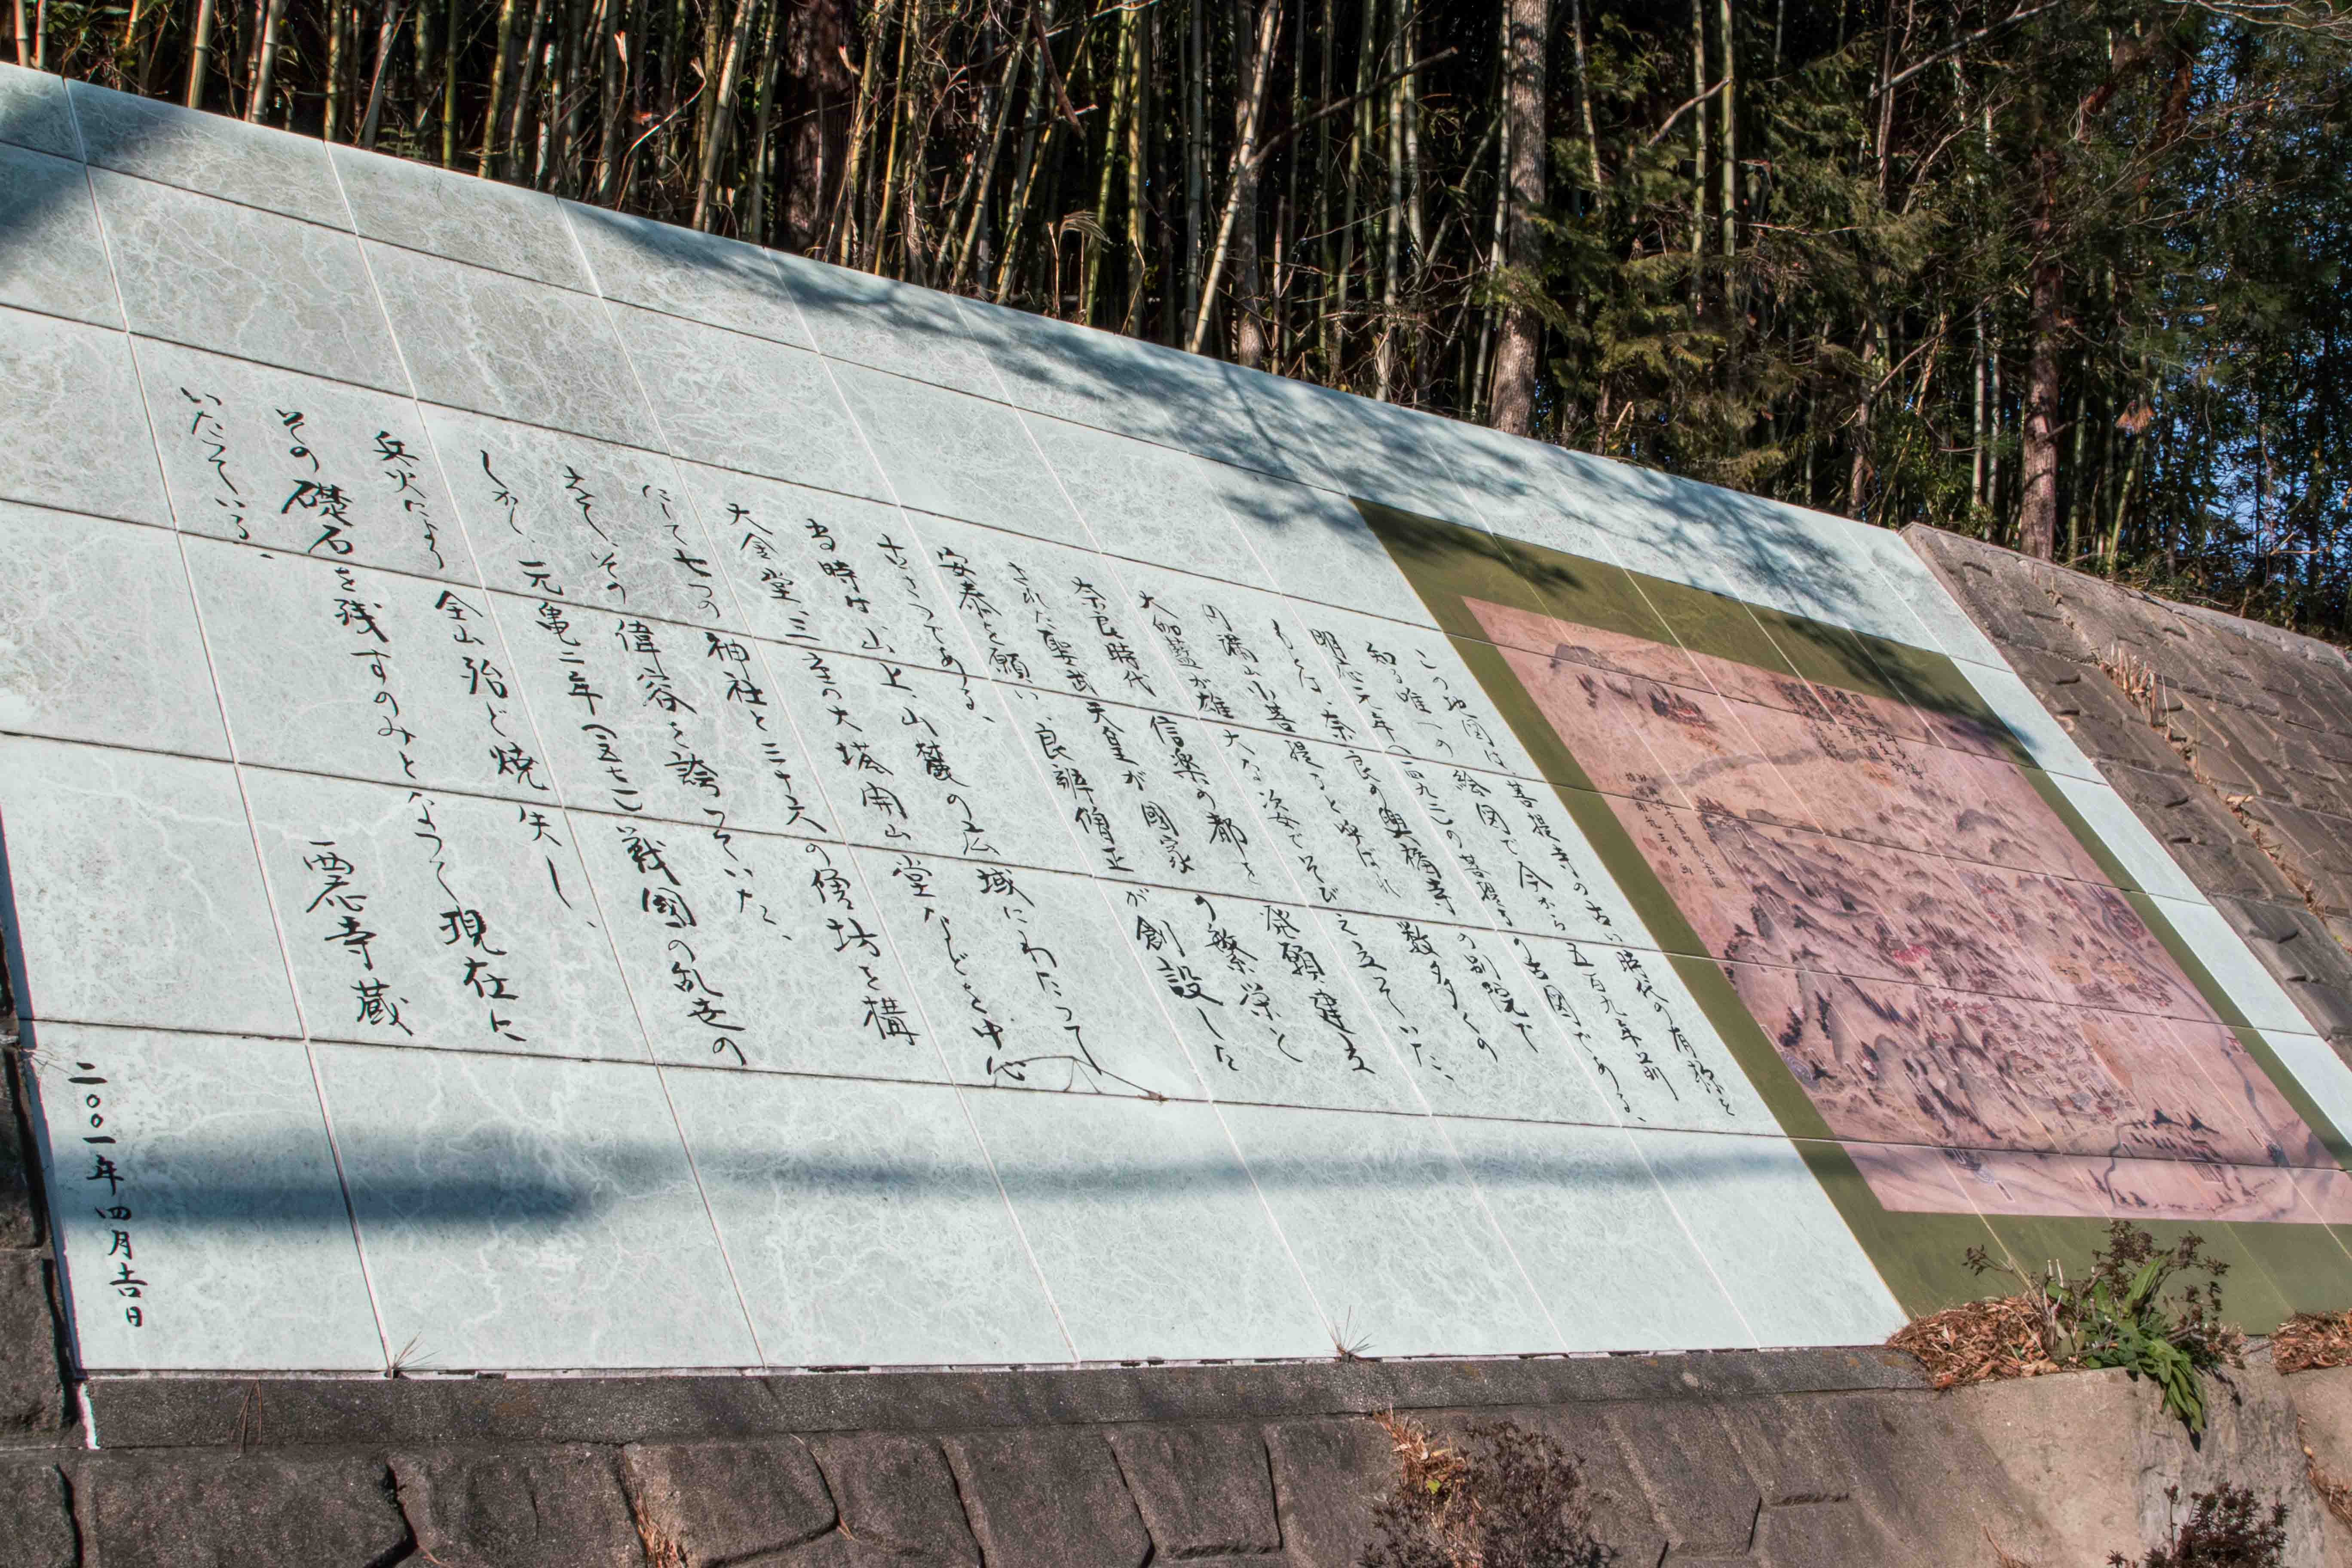 この地図は、菩提寺の古い時代の有様を
知る唯一の絵図で今から五百九年前
明応元年(一四九二)の菩提寺の古図である、
もとは、奈良の興福寺の別院で
円満山少菩提寺と呼ばれ数多くの
大伽藍が雄大な姿でそびえ立っていた、
奈良時代 信楽の都を発願建立
された聖武天皇が國家の繁栄と
安泰を願い、良辧僧正が創設した
古さつである、
当時は山上、山麓の広域にわたって
大金堂、三重の大塔、開山堂などを中心
にして七つの神社と三十六の僧坊を構
えて、その偉容を誇っていた、
しかし、元亀二年(一五七一)戦國の乱世の
兵火により全山殆ど焼失し、
その礎石を残すのみとなって現在に
いたっている、
西應寺蔵
二〇〇一年四月吉日